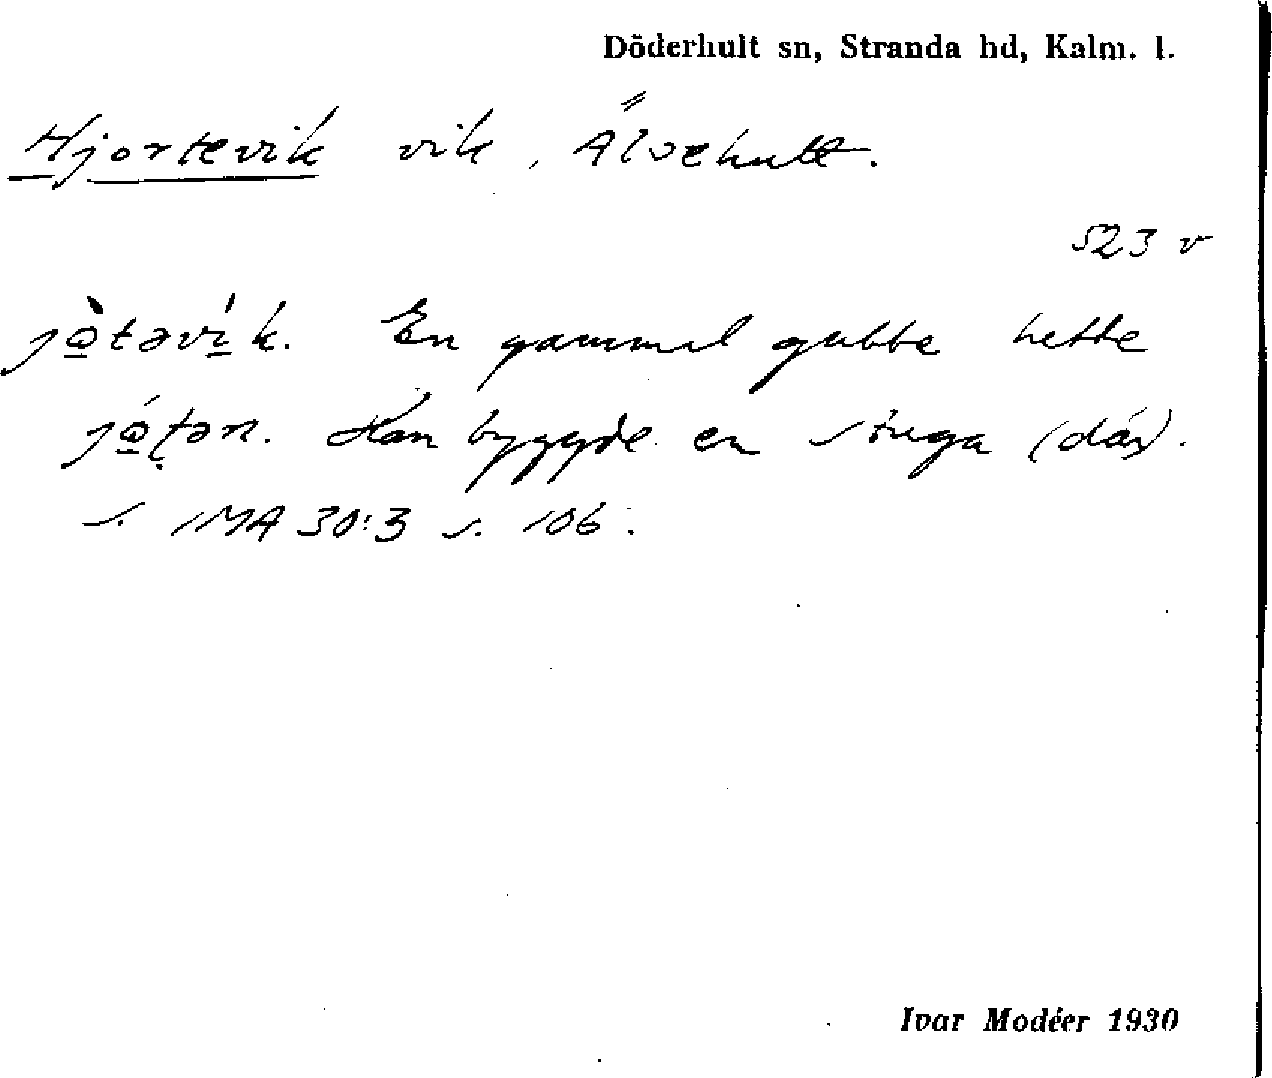 Döderhult sn, Stranda hd, Kalm. l.
Hjortevik vik, Älvehult.
523 v
jɷ̀təvìk. En gammal gubbe hette
jɷ́ʈən. Han byggde en stuga (där).
s. IMA 30:3 s. 106.
Ivar Modéer 1930